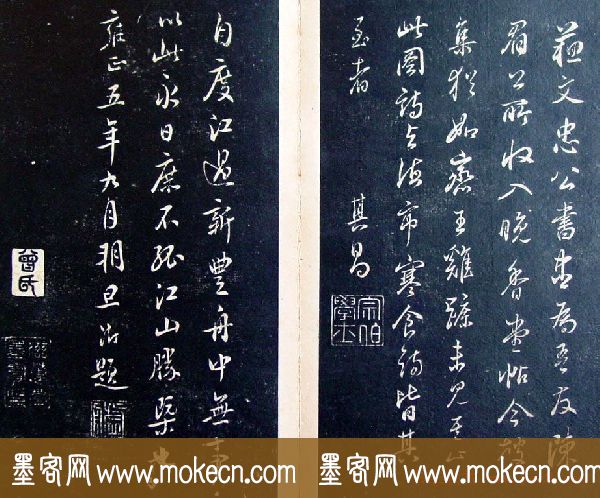 蘇文忠公書盡為吾友陳
眉公所收入晚香堂帖今
集猶如齊王雞蹠未見其止
此圖詩與海市寒食詩皆其
至者 其昌
宗伯學士
自度江過新豐舟中無事
以此永日庶不孤江山勝槩
雍正五年九月朔旦題
曾氏
墨客网 www.mokecn.com
墨客网 www.mokecn.com